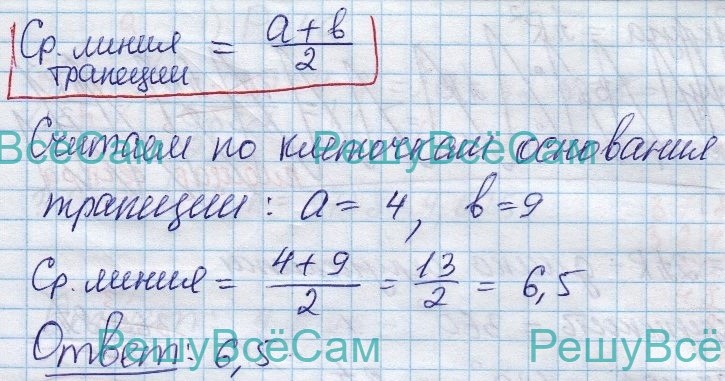 Ср. линия трапеции = a + b / 2
РешуВсёСам РешуВсёСам
Считаем по клеточкам основания
трапеции: a = 4, b = 9
Ср. линия = 4 + 9 / 2 = 13 / 2 = 6,5
Ответ: 6,5
РешуВсёСам РешуВсё